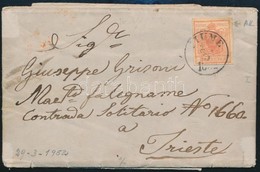 Sig.r
Giuseppe Grisoni
FIUME
Maes.tro falegname
Contrada Solitario No 1660
a
Trieste
29-3-1852